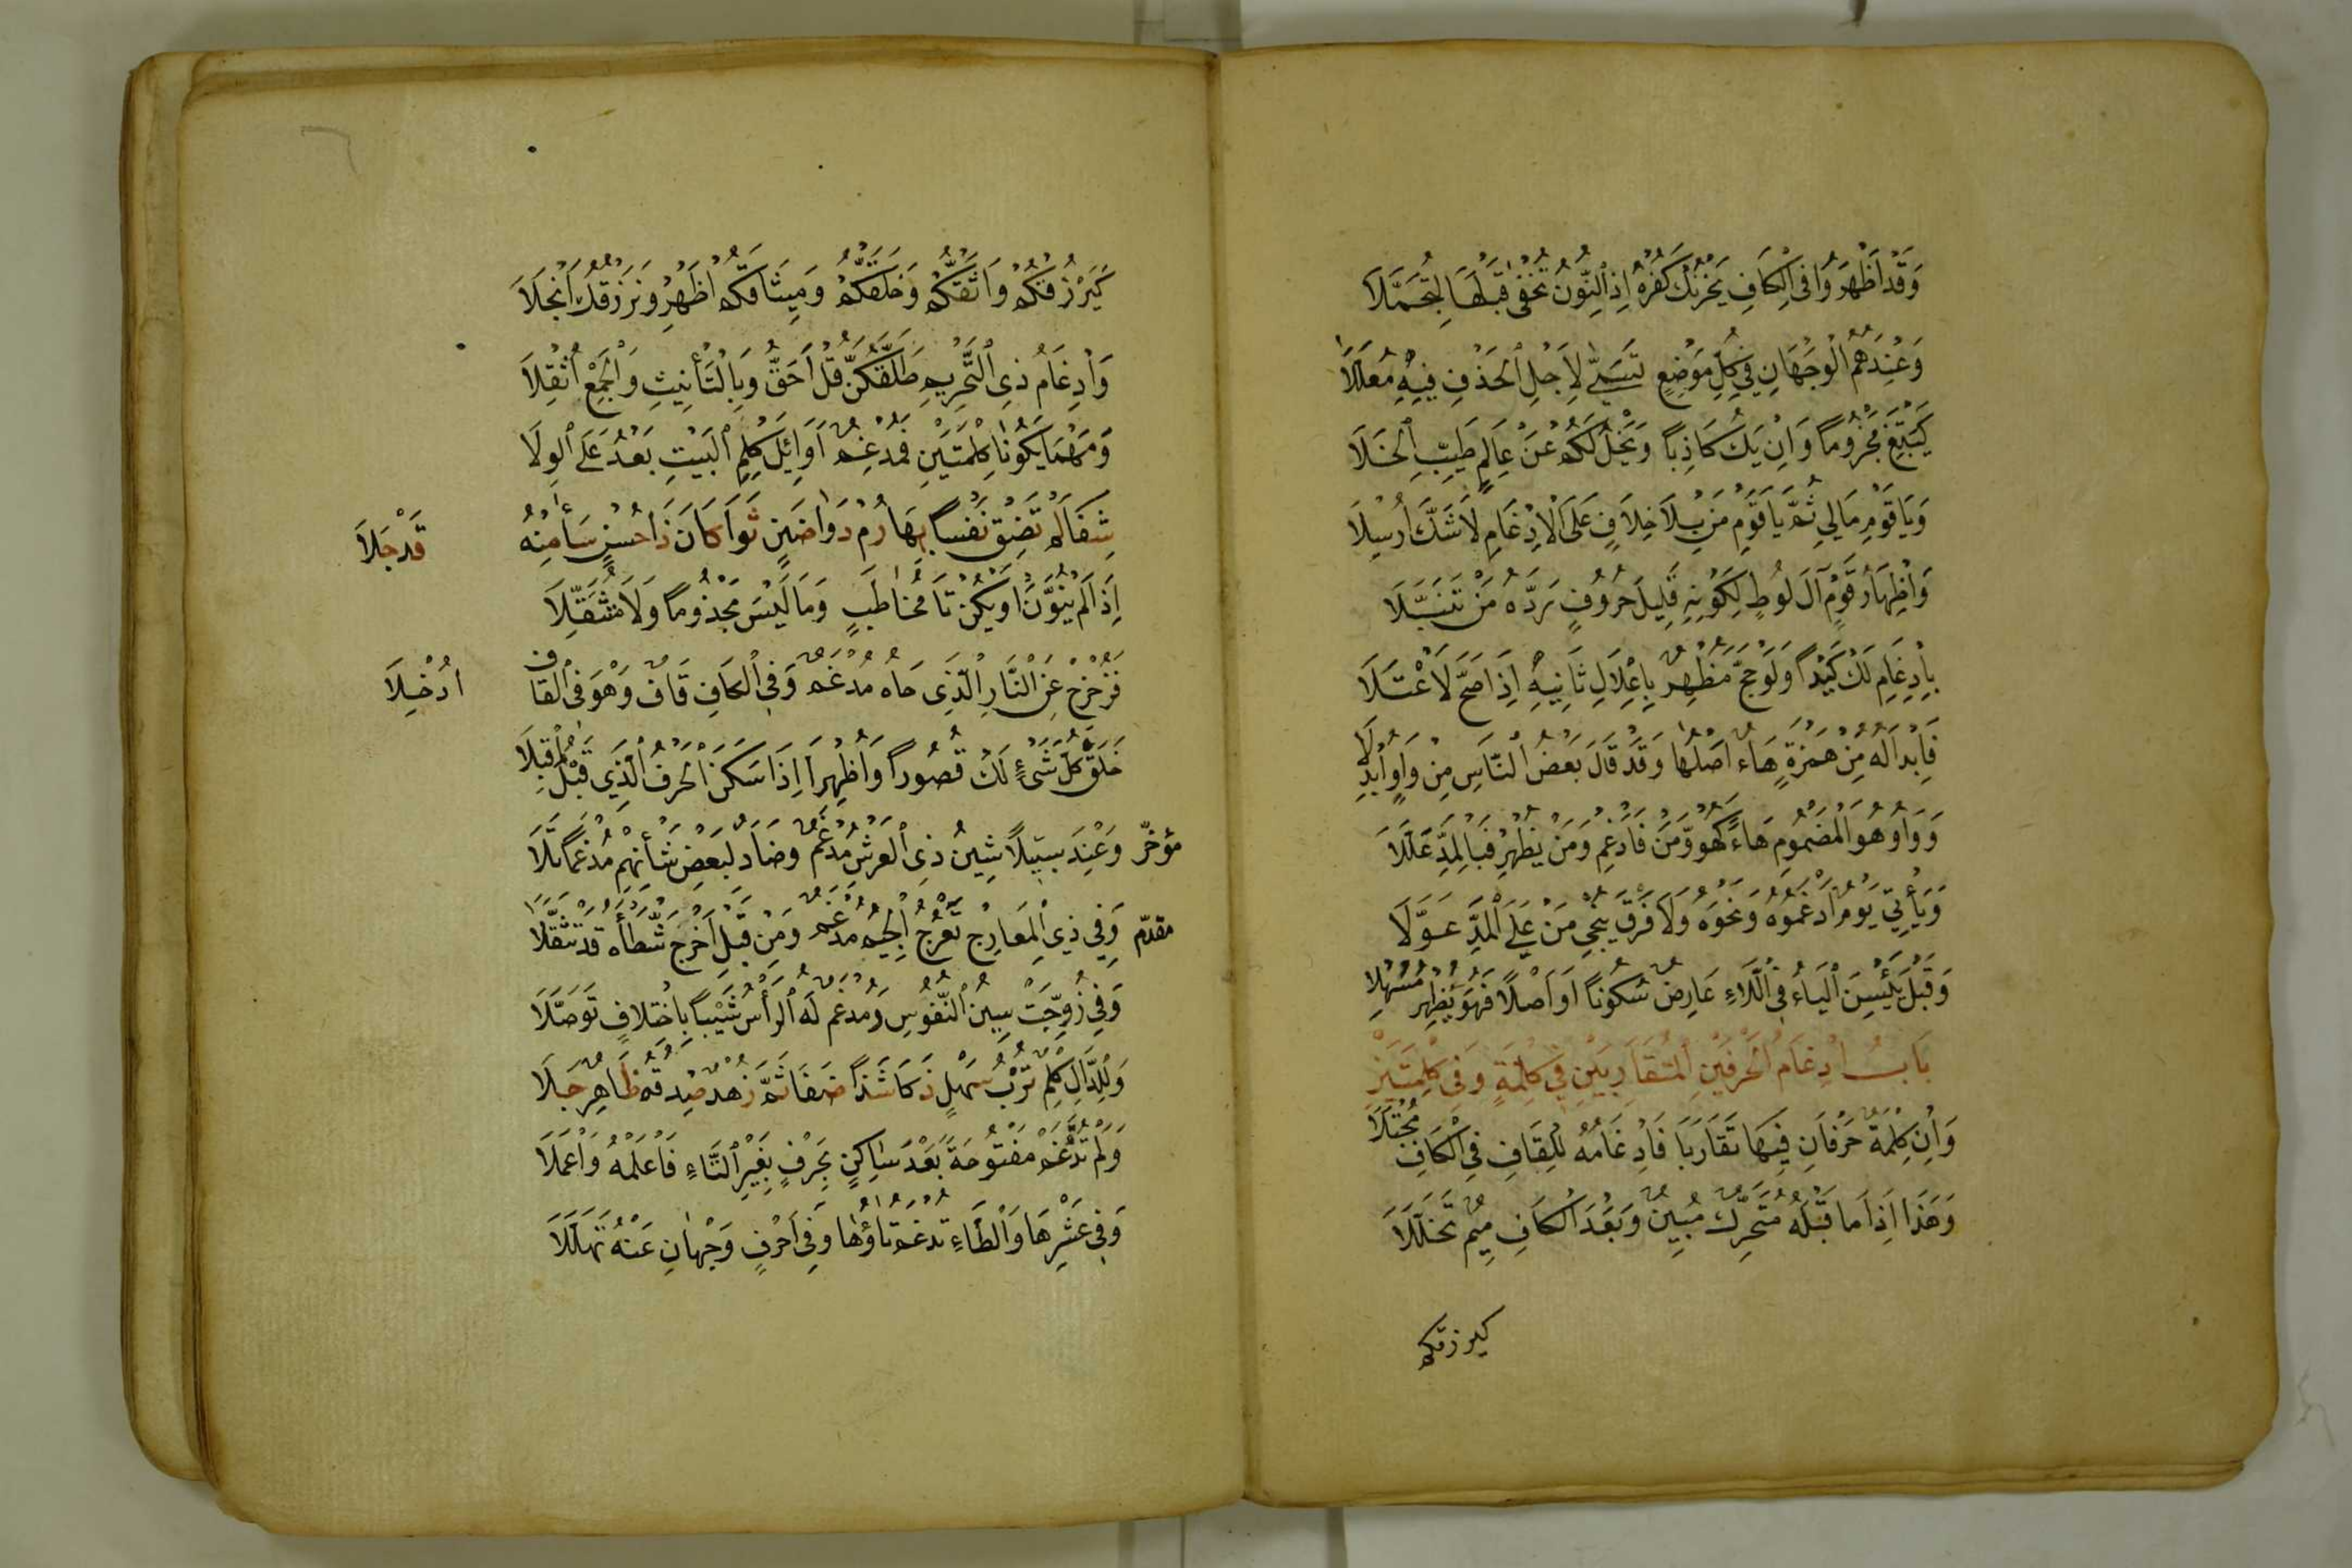 وَقَدْ اَظْهَرُوا فِى الْكَافِ يَحْزُنْكَ كُفْرُهُ اِذِ النُّونُ تُخْفَى قَبْلَهَا لِتُجَمَّلَا
وَعِنْدَهُمُ الْوَجْهَانِ فِي كُلِّ مَوْضِعٍ تَسَمَّى لِاَجْلِ الْحَذْفِ فِيهِ مُعَلَّلَا
كَيَبْتَغِ مَجْزُومًا وَاِنْ يَكُ كَاذِبًا وَيَخْلُ لَكُمْ عَنْ عَالِمٍ طَيِّبِ الْخَلَا
وَيَا قَوْمِ مَالِي ثُمَّ يَا قَوْمِ مَنْ بِلَا خِلَافٍ عَلَى الْاِدْغَامِ لَا شَكَّ اُرْسِلَا
وَاِظْهَارُ قَوْمٍ آلَ لُوطٍ لِكَوْنِهِ قَلِيلَ حُرُوفٍ رَدَّهُ مَنْ تَنَبَّلَا
بِاِدْغَامِ لَكَ كَيْدًا وَلَوْ حَجَّ مُظْهِرٌ بِاِعْلَالِ ثَانِيهِ اِذَا صَحَّ لَاعْتَلَا
فَاِبْدَالُهُ مِنْ هَمْزَةٍ هَاءٌ اَصْلُهَا وَقَدْ قَالَ بَعْضُ النَّاسِ مِنْ وَاوٍ اُبْدِلَا
وَوَاوُ هُوَ الْمَضْمُومِ هَاءً كَهُوَ وَّمَنْ فَادْغِمْ وَمَنْ يُظْهِرْ فَبِالْمَدِّ عَلَّلَا
وَيَأْتِيَ يَوْمٌ اَدْغَمُوهُ وَنَحْوَهُ وَلَا فَرْقَ يُنْجِي مَنْ عَلَى الْمَدِّ عَوَّلَا
وَقَبْلَ يَئِسْنَ الْيَاءُ فِى الَّلَاءِ عَارِضٌ سُكُونًا اَوْ اَصْلًا فَهُوَ يُظْهِرُ مُسْهِلَا
بَابُ اِدْغَامِ الْحَرْفَيْنِ الْمُتَقَارِبَيْنِ فِي كَلِمَةٍ وَفِي كَلِمَتَيْنِ
وَاِنْ كِلْمَةٌ حَرْفَانِ فِيهَا تَقَارَبَا فَاِدْغَامُهُ لِلْقَافِ فِي الْكَافِ مُجْتَلَا
وَهَذَا اِذَا مَا قَبْلَهُ مُتَحَرِّكٌ مُبِينٌ وَبَعْدَ الْكَافِ مِيمٌ تَخَلَّلَا
كيرزقكم
كَيَرْزُقْكُمُ وَاثَقْكُّمُ وَخَلَقْكُّمُ وَمِيثَاقَكُمْ اَظْهِرْ وَنَرْزُقُكَ انْجَلَا
وَاِدْغَامُ ذِى التَّحْرِيمِ طَلَّقَكُنَّ قُلْ اَحَقُّ وَبِالتَّأْنِيثِ وَالْجَمْعِ اُثْقِلَا
وَمَهْمَا يَكُونَا كِلْمَتَيْنِ فَمُدْغِمٌ اَوَائِلَ كِلْمِ الْبَيْتِ بَعْدُ عَلَى الْوِلَا
شِفَا لَمْ تَضِقْ نَفْسًا بِهَا رُمْ دَوَا ضَنٍ ثَوَا كَانَ ذَا حُسْنٍ سَأَى مِنْهُ قَدْ جَلَا
اِذَا لَمْ يُنَوَّنْ اَوْ يَكُنْ تَا مُخَاطَبٍ وَمَا لَيْسَ مَجْزُومًا وَلَا مُتَثَقِّلَا
فَزُحْزِحَ عَنِ النَّارِ الَّذِى حَاهُ مُدْغَمٌ وَفِى الْكَافِ قَافٌ وَهْوَ فِى الْقَافِ اُدْخِلَا
خَلَقَ كُلَّ شَىْءٍ لَكَ قُصُورًا وَاَظْهِرَا اِذَا سَكَنَ الْحَرْفُ الَّذِى قَبْلُ اُقْبِلَا
مؤخّر وَعِنْدَ سَبِيلًا شِينُ ذِى الْعَرْشِ مُدْغَمٌ وَضَادُ لِبَعْضِ شَأْنِهِمْ مُدْغَمًا تَلَا
مقدّم وَفِي ذِي الْمَعَارِجِ تَعْرُجُ الْجِيمُ مُدْغَمٌ وَمِنْ قَبْلُ اَخْرَجَ شَّطْأَهُ قَدْ تَثَقَّلَا
وَفِي زُوِّجَتْ سِينُ النُّفُوسِ وَمُدْغَمٌ لَهُ الرَّأْسُ شَيْبًا بِاخْتِلَافٍ تَوَصَّلَا
وَلِلدَّالِ كِلْمٌ تُرْبُ سَهْلٍ ذَكَا شَذًا ضَفَا ثَمَّ زُهْدٌ صِدْقُهُ ظَاهِرٌ جَلَا
وَلَمْ تُدَّغَمْ مَفْتُوحَةً بَعْدَ سَاكِنٍ بِحَرْفٍ بِغَيْرِ التَّاءِ فَاعْلَمْهُ وَاعْمَلَا
وَفِي عَشْرِهَا وَالطَّاءِ تُدْغَمُ تَاؤُهَا وَفِي اَحْرُفٍ وَجْهَانِ عَنْهُ تَهَلَّلَا